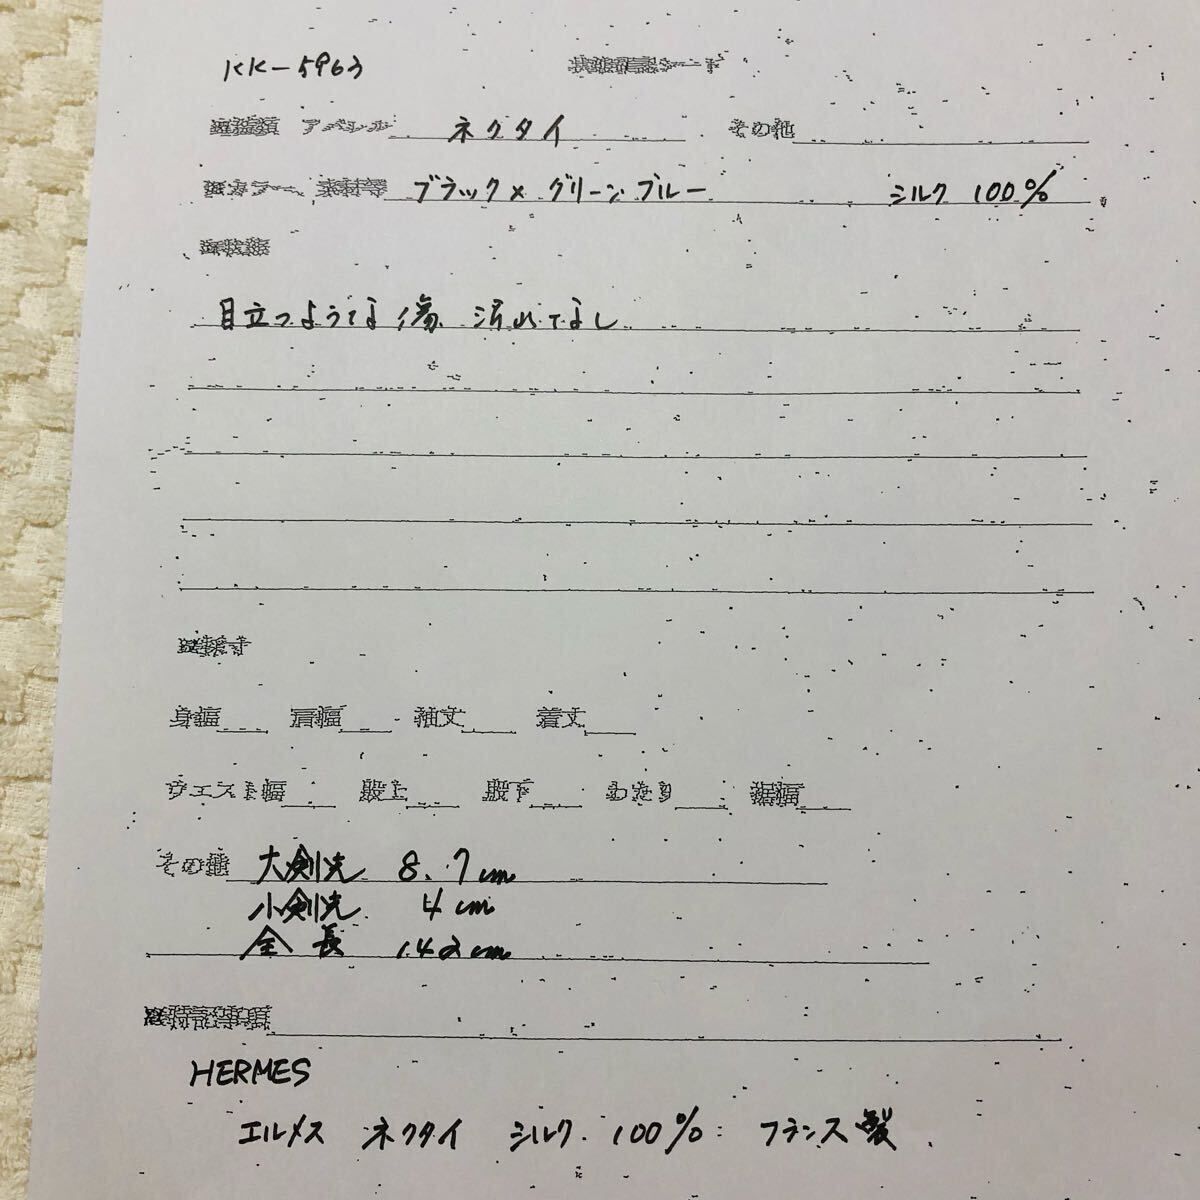 KK-5963
アパレル ネクタイ その他
カラー、素材等 ブラック×グリーンブルー シルク 100%
目立つような傷 汚れなし
採寸
身幅 肩幅 袖丈 着丈
ウエスト幅 股上 股下 わたり 裾幅
その他 大剣先 8.7cm
小剣先 4cm
全長 142cm
特記事項
HERMES
エルメス ネクタイ シルク 100% フランス製